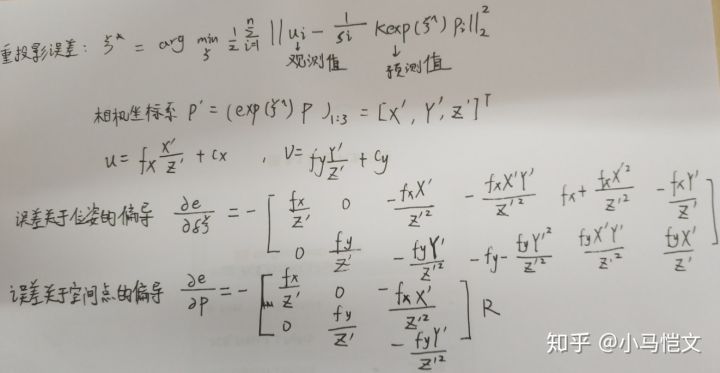 重投影误差: ξ* = arg min_ξ 1/2 Σ_{i=1}^{n} ||u_i - 1/s_i K exp(ξ^) P_i||_2^2
↓ 观测值 ↓ 预测值
相机坐标系 P' = (exp(ξ^) P)_{1:3} = [X', Y', Z']^T
u = fx X'/Z' + cx , V = fy Y'/Z' + cy
误差关于位姿的偏导 ∂e/∂δξ = - [ fx/Z' 0 -fxX'/Z'^2 -fxX'Y'/Z'^2 fx+fxX'^2/Z'^2 -fxY'/Z'
0 fy/Z' -fyY'/Z'^2 -fy-fyY'^2/Z'^2 fyX'Y'/Z'^2 fyX'/Z' ]
误差关于空间点的偏导 ∂e/∂P = - [ fx/Z' 0 -fxX'/Z'^2
0 fy/Z' -fyY'/Z'^2 ] R
知乎 @小马恺文